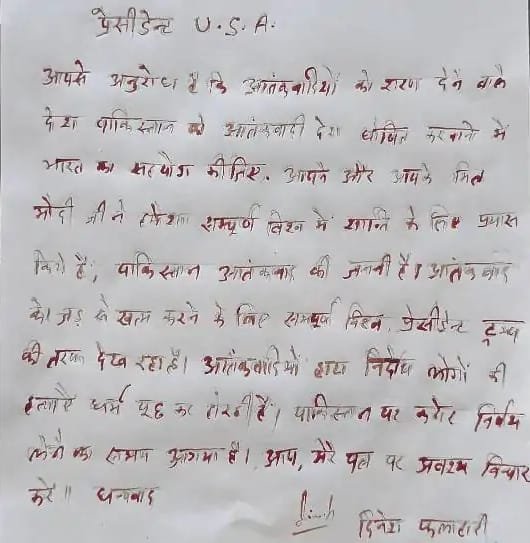 प्रेसीडेन्ट U.S.A.
आपसे अनुरोध है कि आतंकवादियों को शरण देने वाले
देश पाकिस्तान को आतंकवादी देश घोषित करवाने में
भारत का सहयोग कीजिए. आपने और आपके मित्र
मोदी जी ने हमेशा सम्पूर्ण विश्व में शान्ति के लिए प्रयास
किये हैं, पाकिस्तान आतंकवाद की जननी है। आतंकवाद
को जड़ से खत्म करने के लिए सम्पूर्ण विश्व, प्रेसीडेन्ट ट्रम्प
की तरफ देख रहा है। आतंकवादियों द्वारा निर्दोष लोगों की
हत्याऐं धर्म पूछ कर हो रही हैं। पाकिस्तान पर कठोर निर्णय
लेने का समय आगया है। आप, मेरे पत्र पर अवश्य विचार
करें॥ धन्यवाद
दिनेश फलाहारी